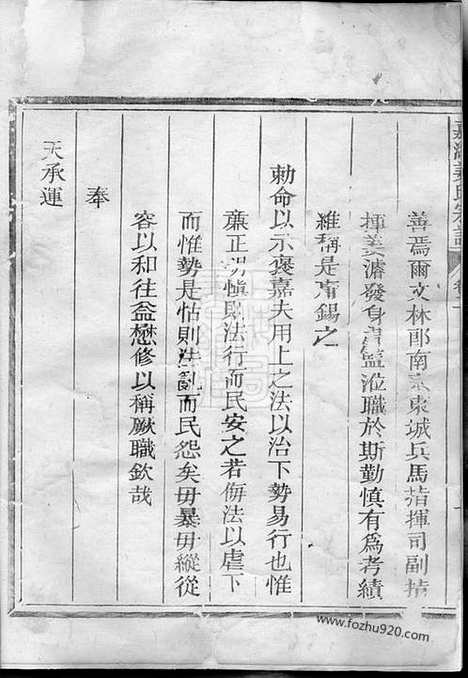 善焉爾文林郎南京東城兵馬指揮司副指
揮姜濬發身胄監涖職於斯勤慎有為考績
維稱是用錫之
勅命以示褒嘉夫用上之法以治下勢易行也惟
廉正明慎則法行而民安之若侮法以虐下
而惟勢是怙則法亂而民怨矣毋暴毋縱從
容以和往益懋修以稱厥職欽哉
奉
天承運
www.fozhu920.com